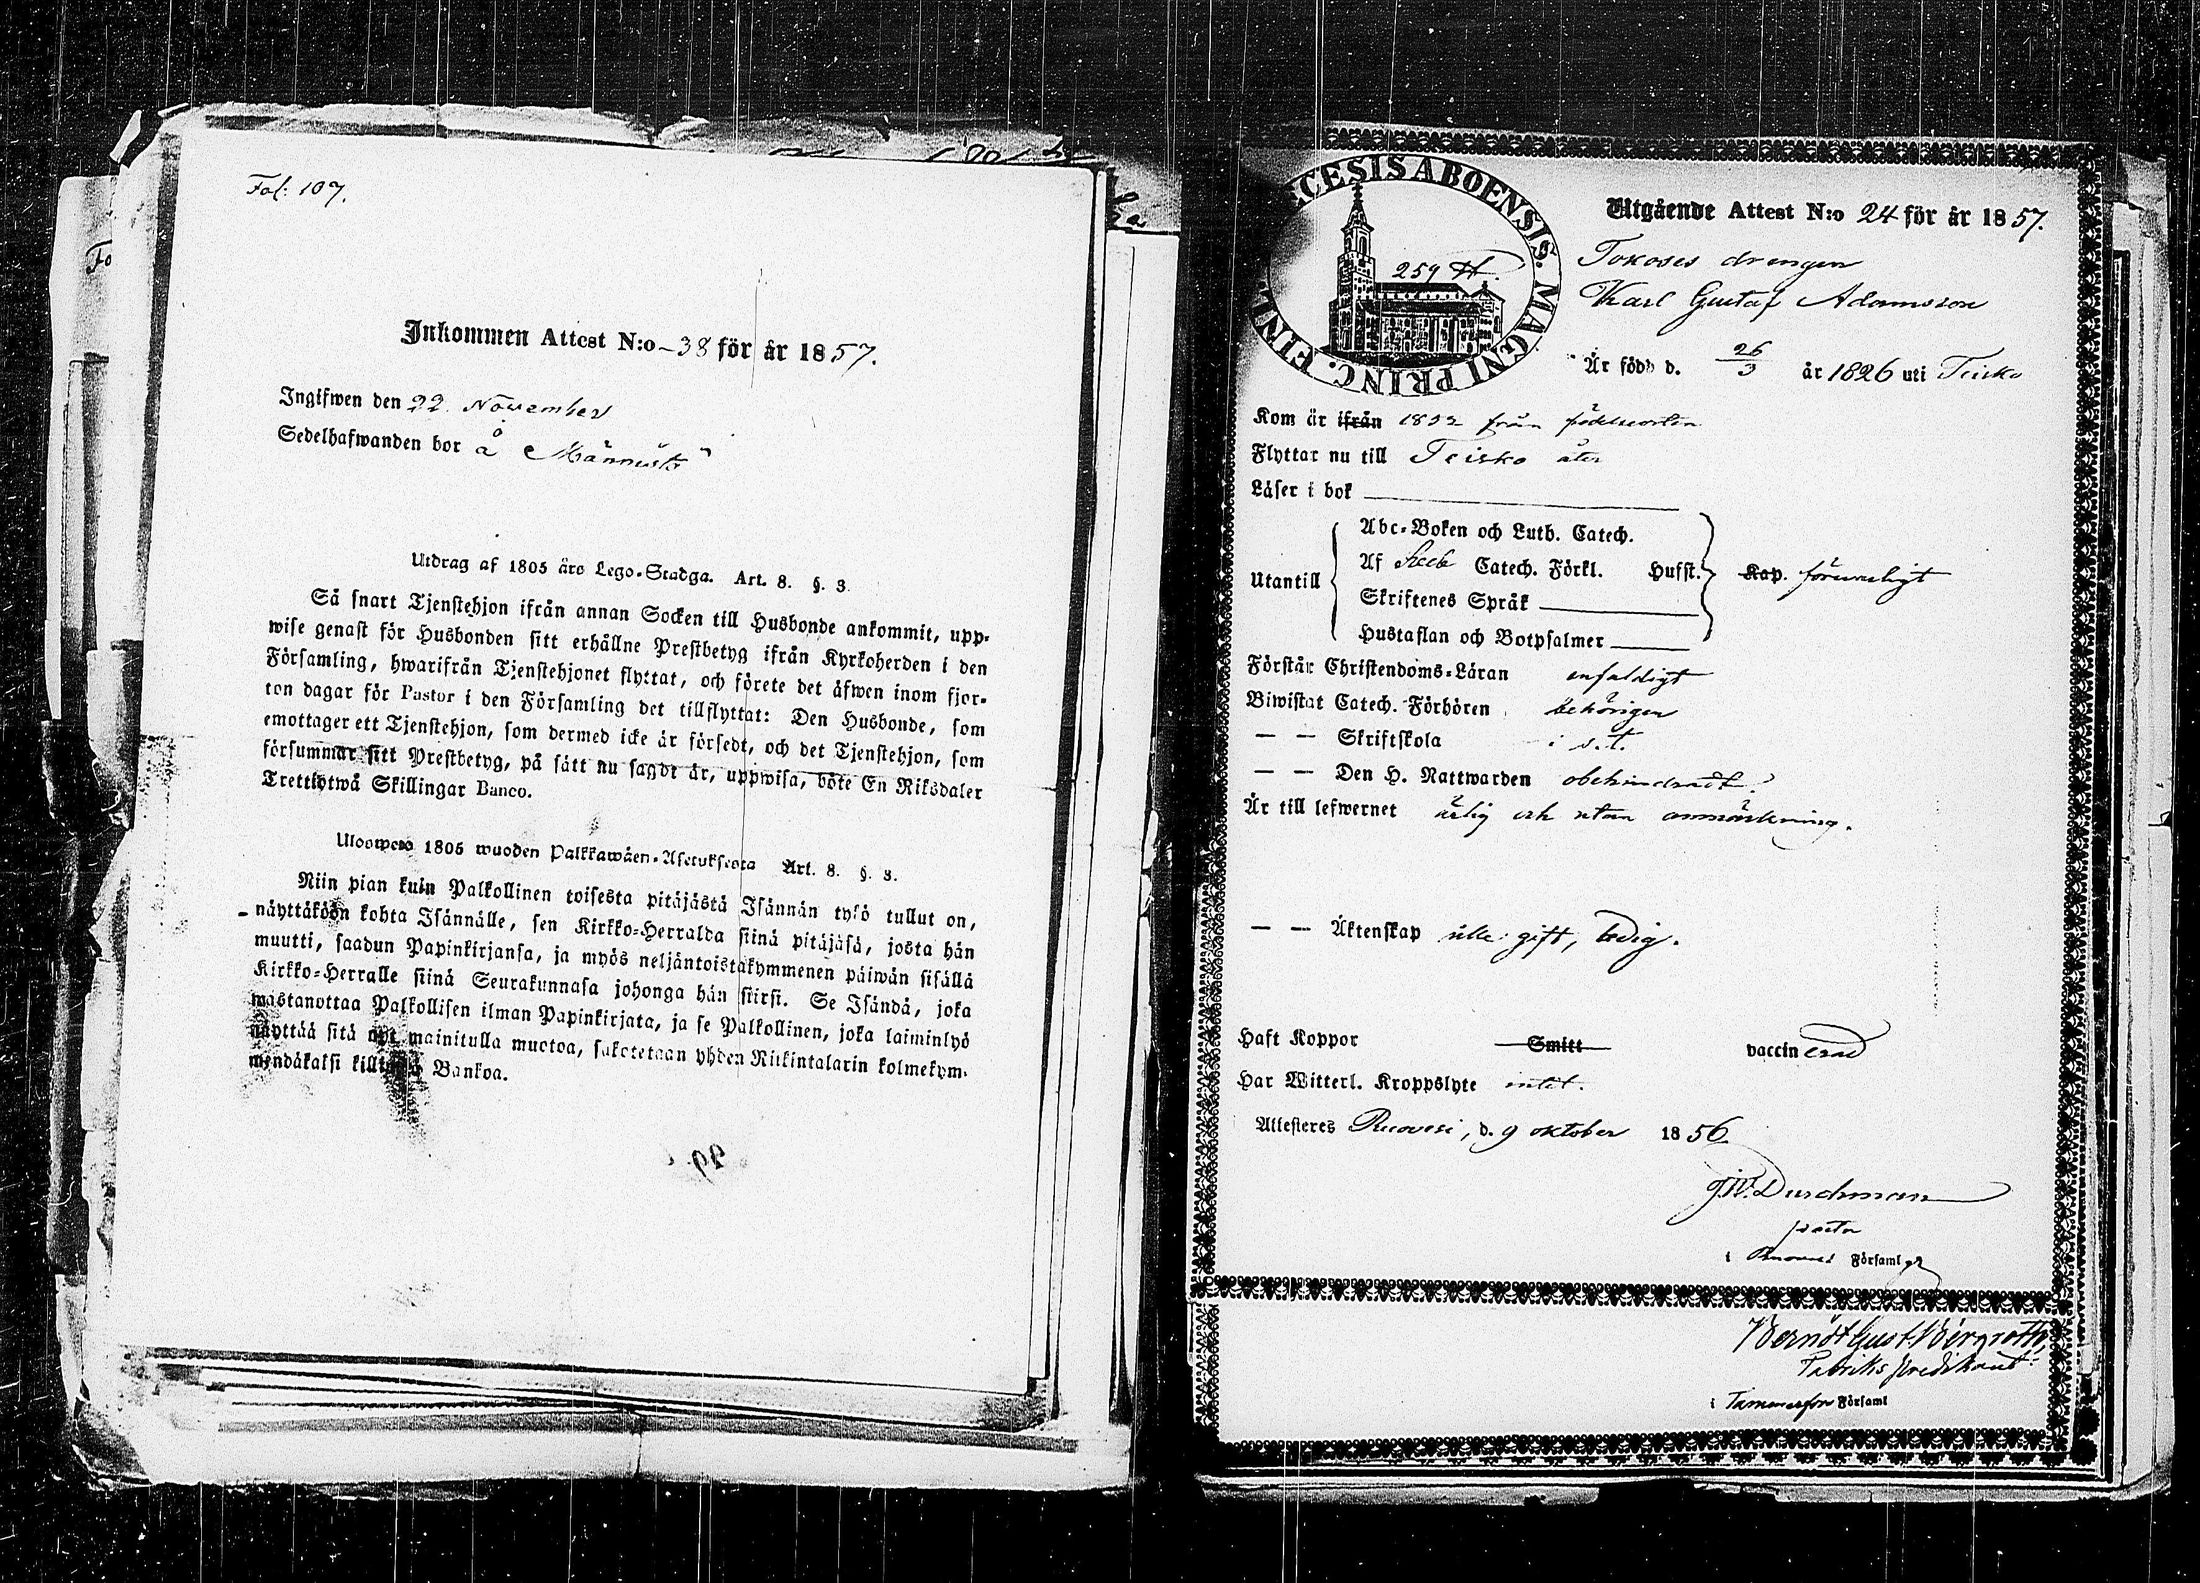 Fol: 107.
Inkommen Attest N:o 38 för år 1857.
Ingifwen den 22 November
Sedelhafwanden bor å Männistö
Utdrag af 1805 års Lego-Stadga. Art. 8. §. 3.
Så snart Tjenstehjon ifrån annan Socken till Husbonde ankommit, upp-
wise genast för Husbonden sitt erhållne Prestbetyg ifrån Kyrkoherden i den
Församling, hwarifrån Tjenstehjonet flyttat, och förete det äfwen inom fjor-
ton dagar för Pastor i den Församling det tillflyttat: Den Husbonde, som
emottager ett Tjenstehjon, som dermed icke är försedt, och det Tjenstehjon, som
försummar sitt Prestbetyg, på sätt nu sagdt är, uppwisa, böte En Riksdaler
Trettiotwå Skillingar Banco.
Ulosweto 1805 wuoden Palkkawäen-Asetuksesta Art. 8. §. 3.
Niin pian kuin Palkollinen toisesta pitäjästä Isännän tykö tullut on,
näyttäköön kohta Isännälle, sen Kirkko-Herralda siinä pitäjäsä, josta hän
muutti, saadun Papinkirjansa, ja myös neljäntoistakymmenen päiwän sisällä
Kirkko-Herralle siinä Seurakunnasa johonga hän siirsi. Se Isändä, joka
wastanottaa Palkollisen ilman Papinkirjata, ja se Palkollinen, joka laiminlyö
näyttää sitä nyt mainitulla muotoa, sakotetaan yhden Riikintalarin kolmekym-
mendäkaksi killingiä Bankoa.
DIOECESIS ABOENSIS. MAGNI PRINC. FINL
259 H.
Utgående Attest N:o 24 för år 1857.
drengen
Karl Gustaf Adamsson
Är född d. 26/3 år 1826 uti Teisko
Kom är ifrån 1852 från födelseorten
Flyttar nu till Teisko åter
Läser i bok
Utantill
Abc-Boken och Luth. Catech.
Af Catech. Förkl. Hufst. Kap. försvarligt
Skriftenes Språk
Hustaflan och Botpsalmer
Förstår Christendoms-Läran enfaldigt
Biwistat Catech. Förhören behörigen
— — Skriftskola i s. t.
— — Den H. Nattwarden obehindradt.
Är till lefwernet ärlig och utan anmärkning.
— — Äktenskap icke gift, ledig.
Haft Koppor Smitt vaccinerad
Har Witterl. Kroppslyte intet.
Attesteres Ruovesi, d. 9 oktober 1856
J.W. Durchman
pastor
i Ruovesi Församl
Berndt Gust Bergroth,
Fabriks predikant
i Tammerfors Församl